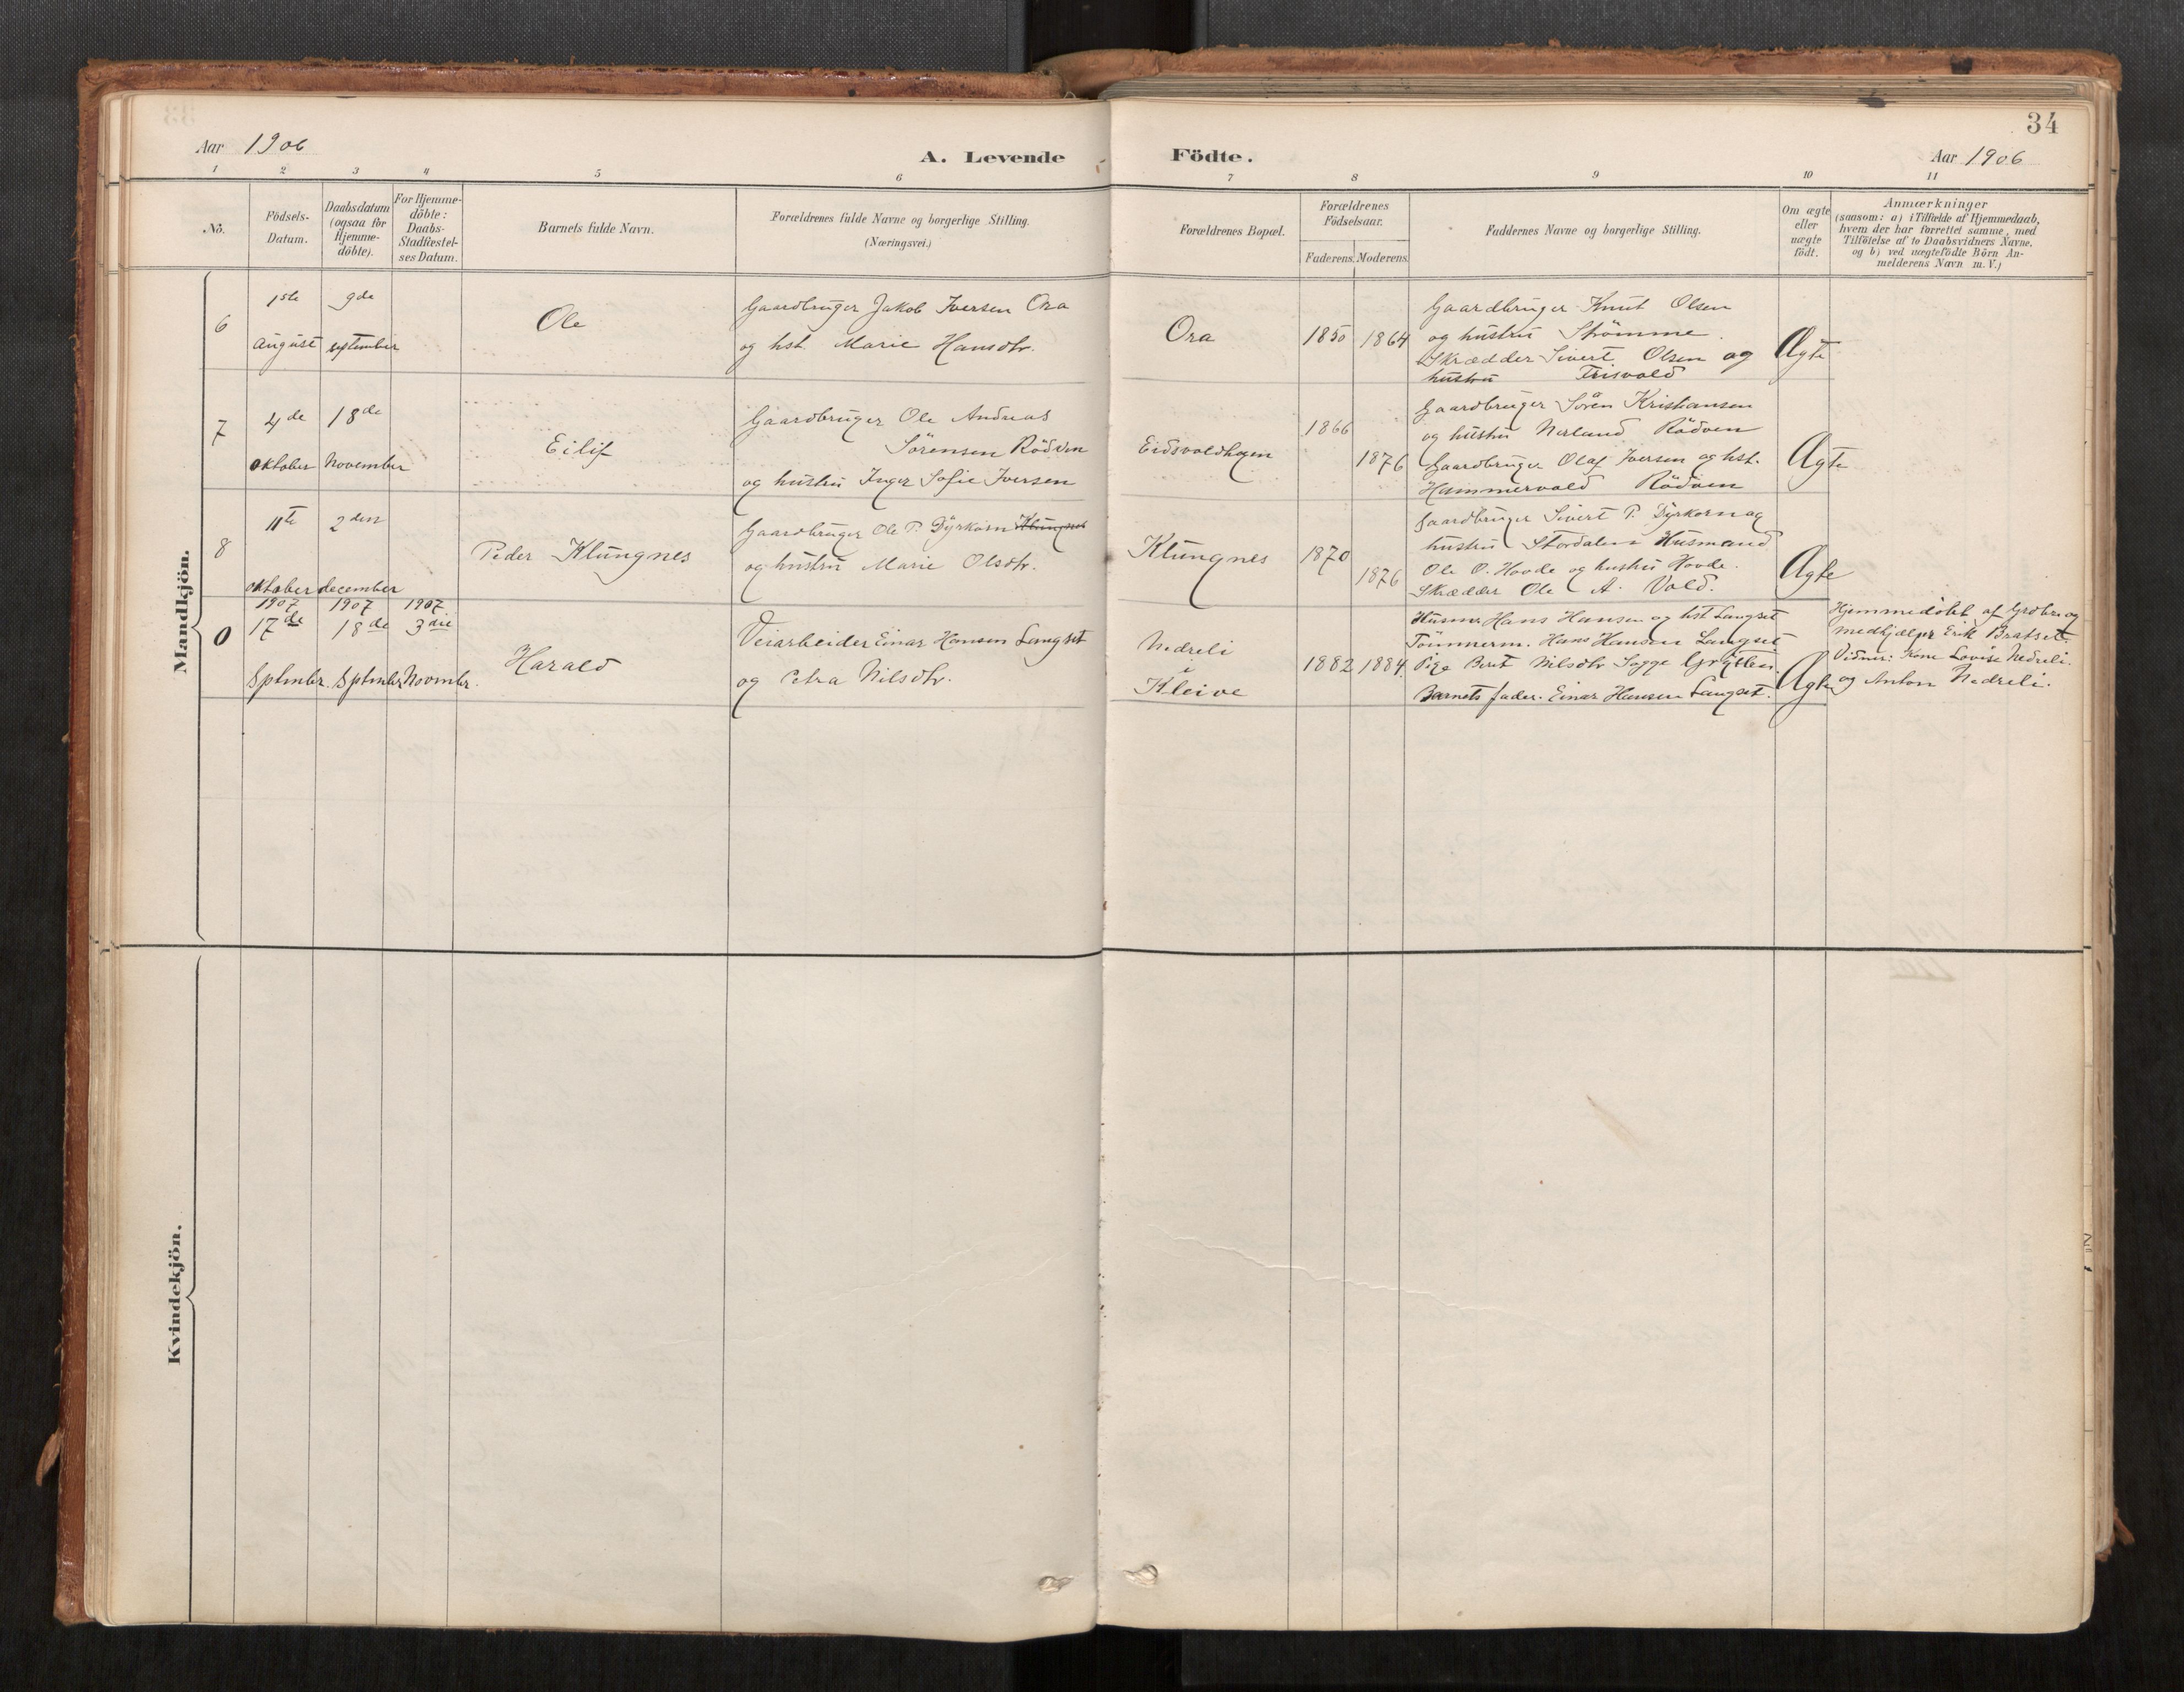 34
Aar 1906
A. Levende Födte.
Aar 1906
1 2 3 4 5 6 7 8 9 10 11
No.
Födsels-
Datum.
Daabsdatum
(ogsaa for
Hjemme-
döbte).
For Hjemme-
döbte:
Daabs-
Stadfæstel-
ses Datum.
Barnets fulde Navn.
Forældrenes fulde Navne og borgerlige Stilling.
(Næringsvei.)
Forældrenes Bopæl.
Forældrenes
Födselsaar.
Faderens. Moderens.
Faddernes Navne og borgerlige Stilling.
Om ægte
eller
uægte
födt.
Anmærkninger
(saasom: a) i Tilfælde af Hjemmedaab,
hvem der har forrettet samme, med
Tilföielse af to Daabsvidners Navne,
og b) ved uægtefödte Börn An-
melderens Navn m. V.)
Mandkjön.
6
1ste
august
9de
september
Ole
Gaardbruger Jakob Iversen Ora
og hst. Marie Hansdtr.
Ora
1850 1864
Gaardbruger Knut Olsen
og hustru Strömme.
Skrædder Sivert Olsen og
hustru Frisvold
Ægte
7
4de
oktober
18de
November
Eilif
Gaardbruger Ole Andreas
Sörensen Rödven
og hustru Inger Sofie Iversen
Eidsvoldhagen
1866
1876
Gaardbruger Sören Kristiansen
og hustru Nerland Rödven
Gaardbruger Olaf Iversen og hst.
Hammervold Rödven
Ægte
8
11te
oktober
2den
december
Peder Klungnes
Gaardbruger Ole P. Dyrkorn Klungnes
og hustru Marie Olsdtr.
Klungnes
1870
1876
Gaardbruger Sivert P. Dyrkorn og
hustru Stordalen Husmand
Ole O. Hovde og hustru Hovde.
Skrædder Ole A. Vold.
Ægte
0
1907
17de
Sptmbr.
1907
18de
Sptmbr
1907
3die
Novmbr.
Harald
Veiarbeider Einar Hansen Langset
og Petra Nilsdtr.
Nedreli
i
Kleive
1882 1884.
Husmn. Hans Hansen og hst Langset
Tömmerm. Hans Hansen Langset
Pige Berit Nilsdtr Sogge
Barnets fader. Einar Hansen Langset.
Ægte
Hjemmedöbt af Grdbr. og
medhjælper Erik Bratset.
Vidner: Kone Lovise Nedreli.
og Anton Nedreli.
Kvindekjön.